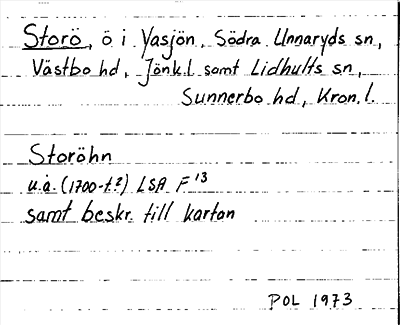 Storö, ö i Vasjön, Södra Unnaryds sn,
Västbo hd, Jönk.l. samt Lidhults sn,
Sunnerbo hd, Kron.l.
Storöhn
u.å. (1700-t.?) LSA F 13
samt beskr. till kartan
POL 1973